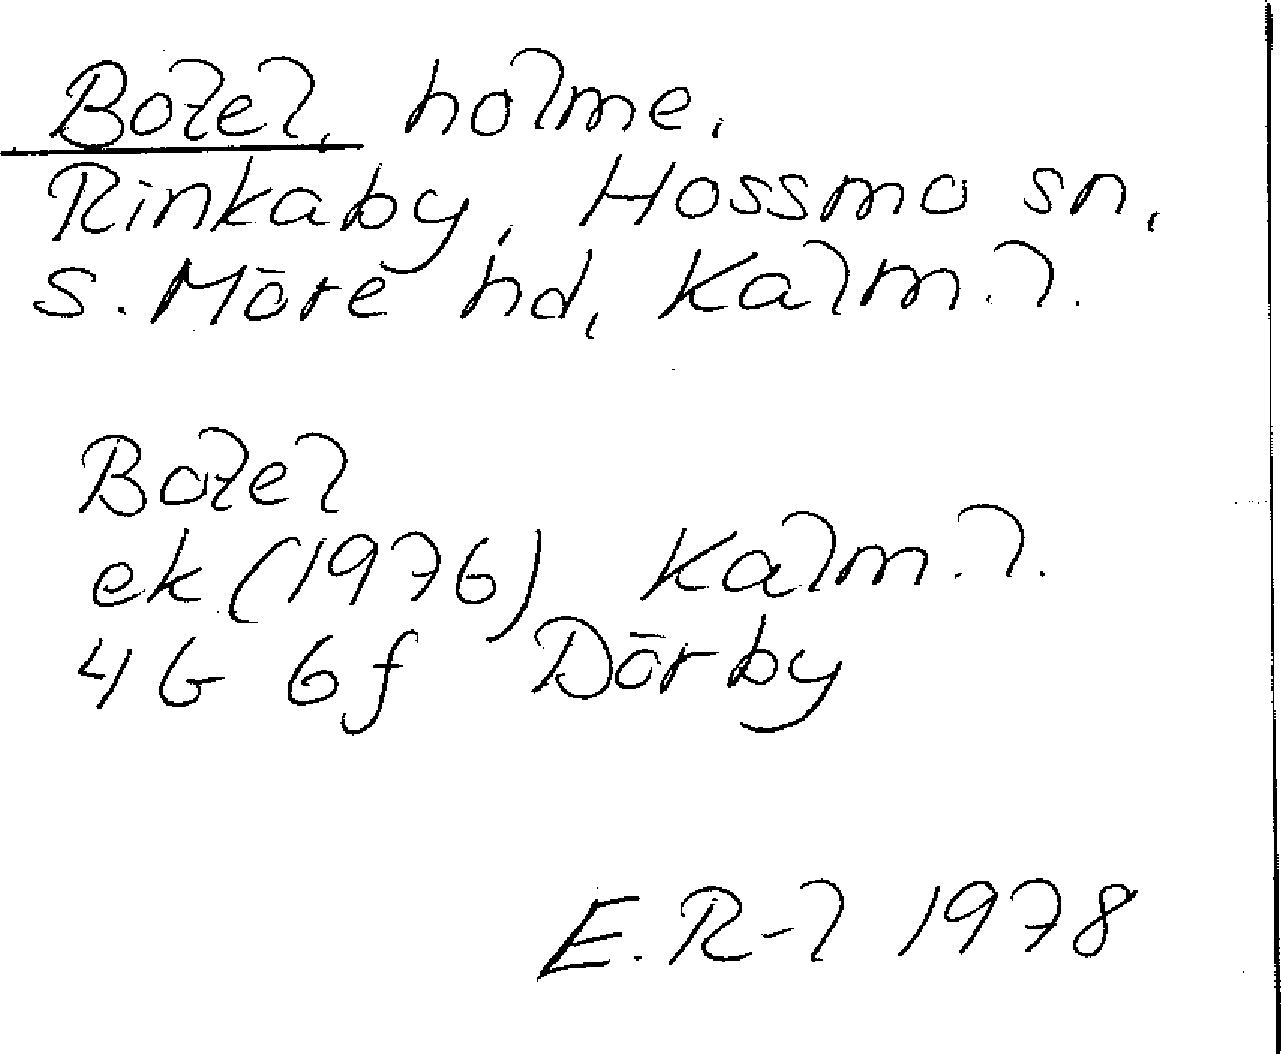 Botel, holme.
Rinkaby, Hossmo sn,
S. Möre hd, Kalm. l.
Botel
ek (1976) Kalm. l.
4G 6f Dörby
E. R-l 1978